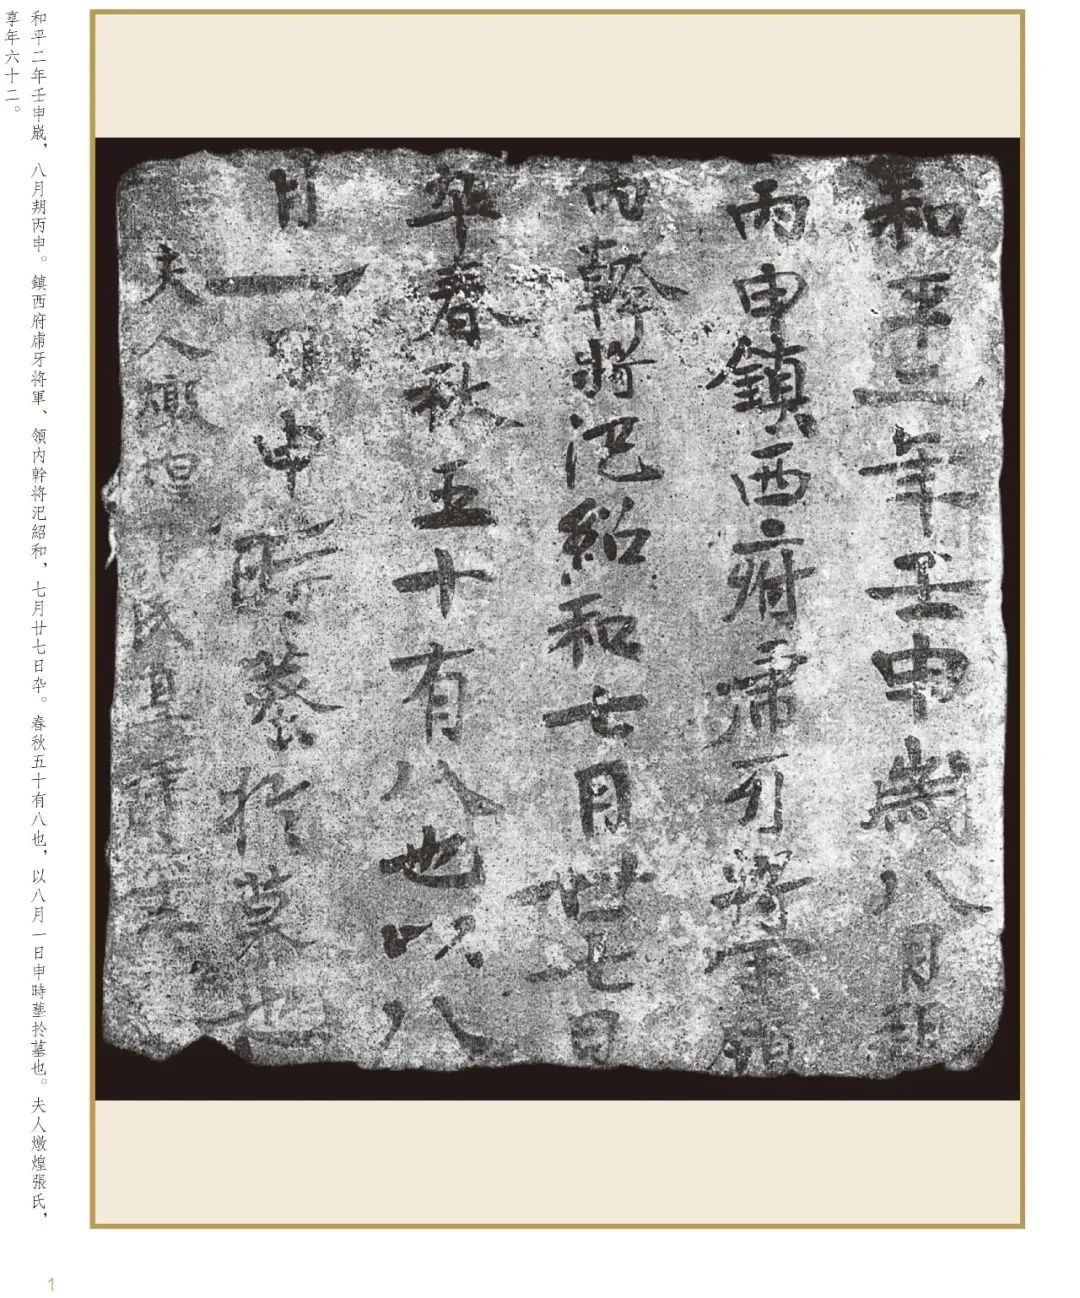 和平二年壬申歲八月朔
丙申鎮西府虎牙將軍領
内幹將氾紹和七月廿七日
卒春秋五十有八也以八
月一日申時塟於墓也
夫人燉煌張氏享年六十二
和平二年壬申嵗，八月朔丙申。鎮西府虎牙將軍、領内幹將氾紹和，七月廿七日卒。春秋五十有八也，以八月一日申時塟扵墓也。夫人燉煌張氏，
享年六十二。
1